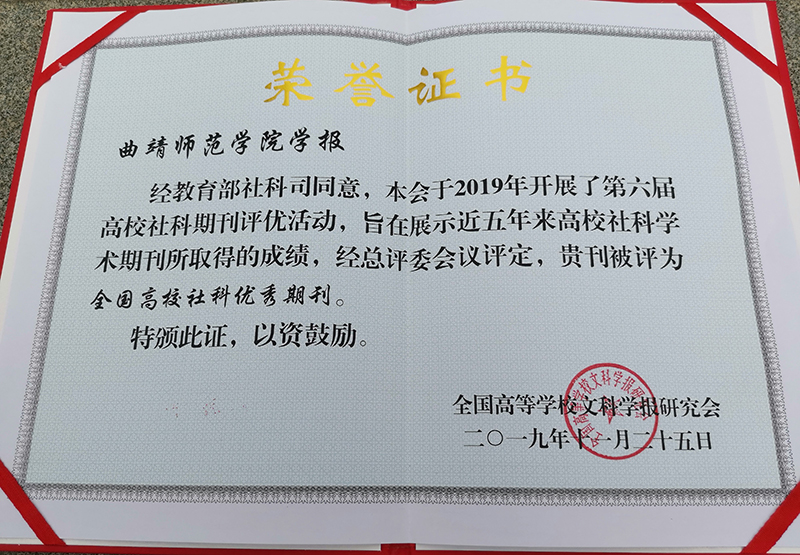 荣誉证书
曲靖师范学院学报
经教育部社科司同意，本会于2019年开展了第六届
高校社科期刊评优活动，旨在展示近五年来高校社科学
术期刊所取得的成绩，经总评委会议评定，贵刊被评为
全国高校社科优秀期刊。
特颁此证，以资鼓励。
全国高等学校文科学报研究会
二〇一九年十一月二十五日
全国高等学校文科学报研究会